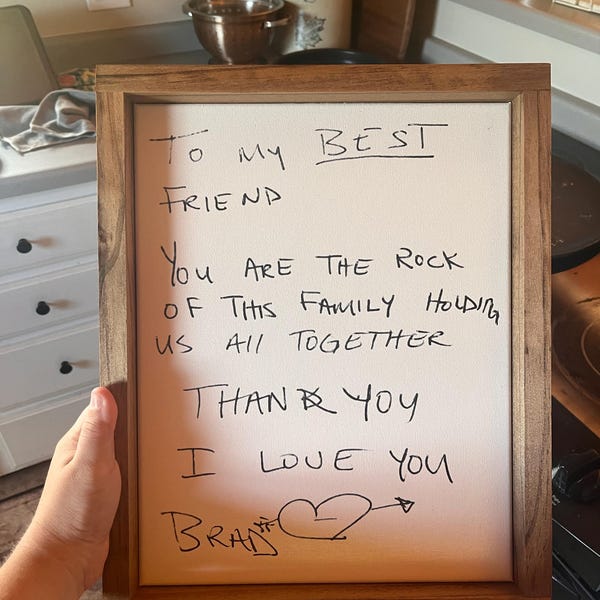 To My BEST
FRIEND
You ARE THE ROCK
OF THIS FAMILY HOLDING
US All TOGETHER
THANK YOU
I LOVE YOU
BRAD